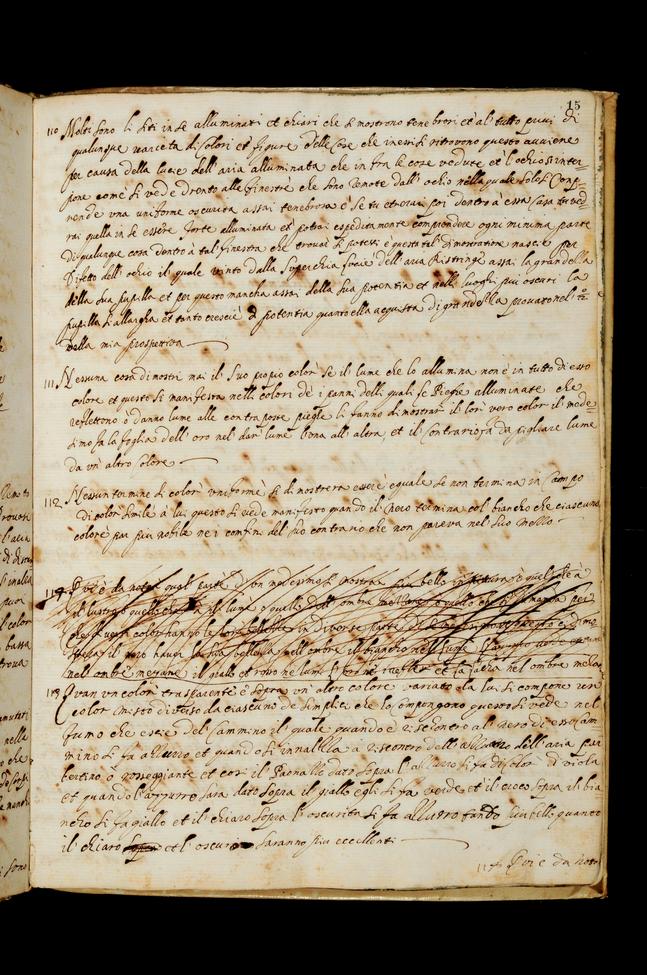 15
110 Molti sono li siti in se alluminati et chiari che si mostrono tenebrosi et al tutto privi di
qualunque varieta di colori et figure delle cose che in essi si ritrovono questo avviene
per causa della luce dell'aria alluminata che in fra le cose vedute et l'ochio s'inter=
pone come si vede drento alle finestre che sono remote dall'ochio nella quale solo si Comp=
rende una uniforme oscurita assai tenebrosa e se tu etrerai poi dentro a essa casa tu ved=
rai quella in se essere forte alluminata et potrai espeditamente comprendere ogni minima parte
di qualunque cosa dentro à tal finestra che trovar si potessi e questa tal dimostratione nasce per
difetto dell'ochio il quale vinto dalla superchia luce dell'aria Ristringe assai la grandezza
della sua pupilla et per questo mancha assai della sua potentia et nelli luoghi piu oscuri la
pupilla si allargha et tanto crescie di potentia quanto ella acquista di grandezza provato nel 2º
della mia prospettiva
111 Nessuna cosa dimostra mai il suo propio color se il lume che lo allumina non è in tutto di esso
colore et questo si manifesta nelli colori de i panni delli quali le Pieghe alluminate che
reflettono o danno lume alle contraposte pieghe li fanno dimostrar il lor vero color il mede=
simo fa la foglia dell'oro nel dar lume l'una all'altra et il contrario fa da pigliare lume
da un'altro colore
112 Nessun termine di color uniforme si dimostrera essere eguale se non termina in Campo
di color simile à lui questo si vede manifesto quando il nero termina col biancho che ciascuno
colore par piu nobile ne i confini del suo contrario che non pareva nel suo mezzo
114 Qui è da notar qual parte d'un medesimo si mostra piu bello in natura o quel che à
il lustro o quello che à il lume o quello dell'ombre
colori hanno le loro bellezze in diverse parte
il nero haver la bellezza nell'ombre il biancho nel lume
nell'ombre mezane il giallo et rosso ne lumi l'oro ne reflessi et la lacca nel ombre mezane
113 Quan un color trasparente è sopra un'altro colore variato da lui si compone un
color misto diverso da ciascuno de simplici che lo compongono questo si vede nel
fumo che escie del cammino il quale quando è riscontro al nero di esso cam=
mino si fa azzurro et quando s'innalza a riscontro dell'azzurro dell'aria par
berettino o rosseggiante et cosi il Paonazzo dato sopra l'azzurro si fa di color di viola
et quando l'azzurro sara dato sopra il giallo egli si fa verde et il croco sopra il bia
ncho si fa giallo et il chiaro sopra l'oscurita si fa azzurro tanto piu bello quanto
il chiaro et l'oscuro saranno piu eccellenti
114 Qui è da notar